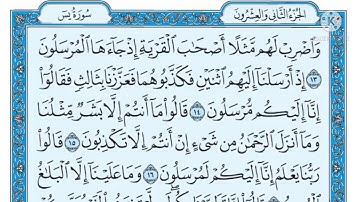 الجزء الثاني والعشرون
سورة يس
وَاضْرِبْ لَهُم مَّثَلًا أَصْحَابَ الْقَرْيَةِ إِذْ جَاءَهَا الْمُرْسَلُونَ
﴿١٣﴾ إِذْ أَرْسَلْنَا إِلَيْهِمُ اثْنَيْنِ فَكَذَّبُوهُمَا فَعَزَّزْنَا بِثَالِثٍ فَقَالُوا
إِنَّا إِلَيْكُم مُّرْسَلُونَ ﴿١٤﴾ قَالُوا مَا أَنتُمْ إِلَّا بَشَرٌ مِّثْلُنَا
وَمَا أَنزَلَ الرَّحْمَٰنُ مِن شَيْءٍ إِنْ أَنتُمْ إِلَّا تَكْذِبُونَ ﴿١٥﴾ قَالُوا
رَبُّنَا يَعْلَمُ إِنَّا إِلَيْكُمْ لَمُرْسَلُونَ ﴿١٦﴾ وَمَا عَلَيْنَا إِلَّا الْبَلَاغُ